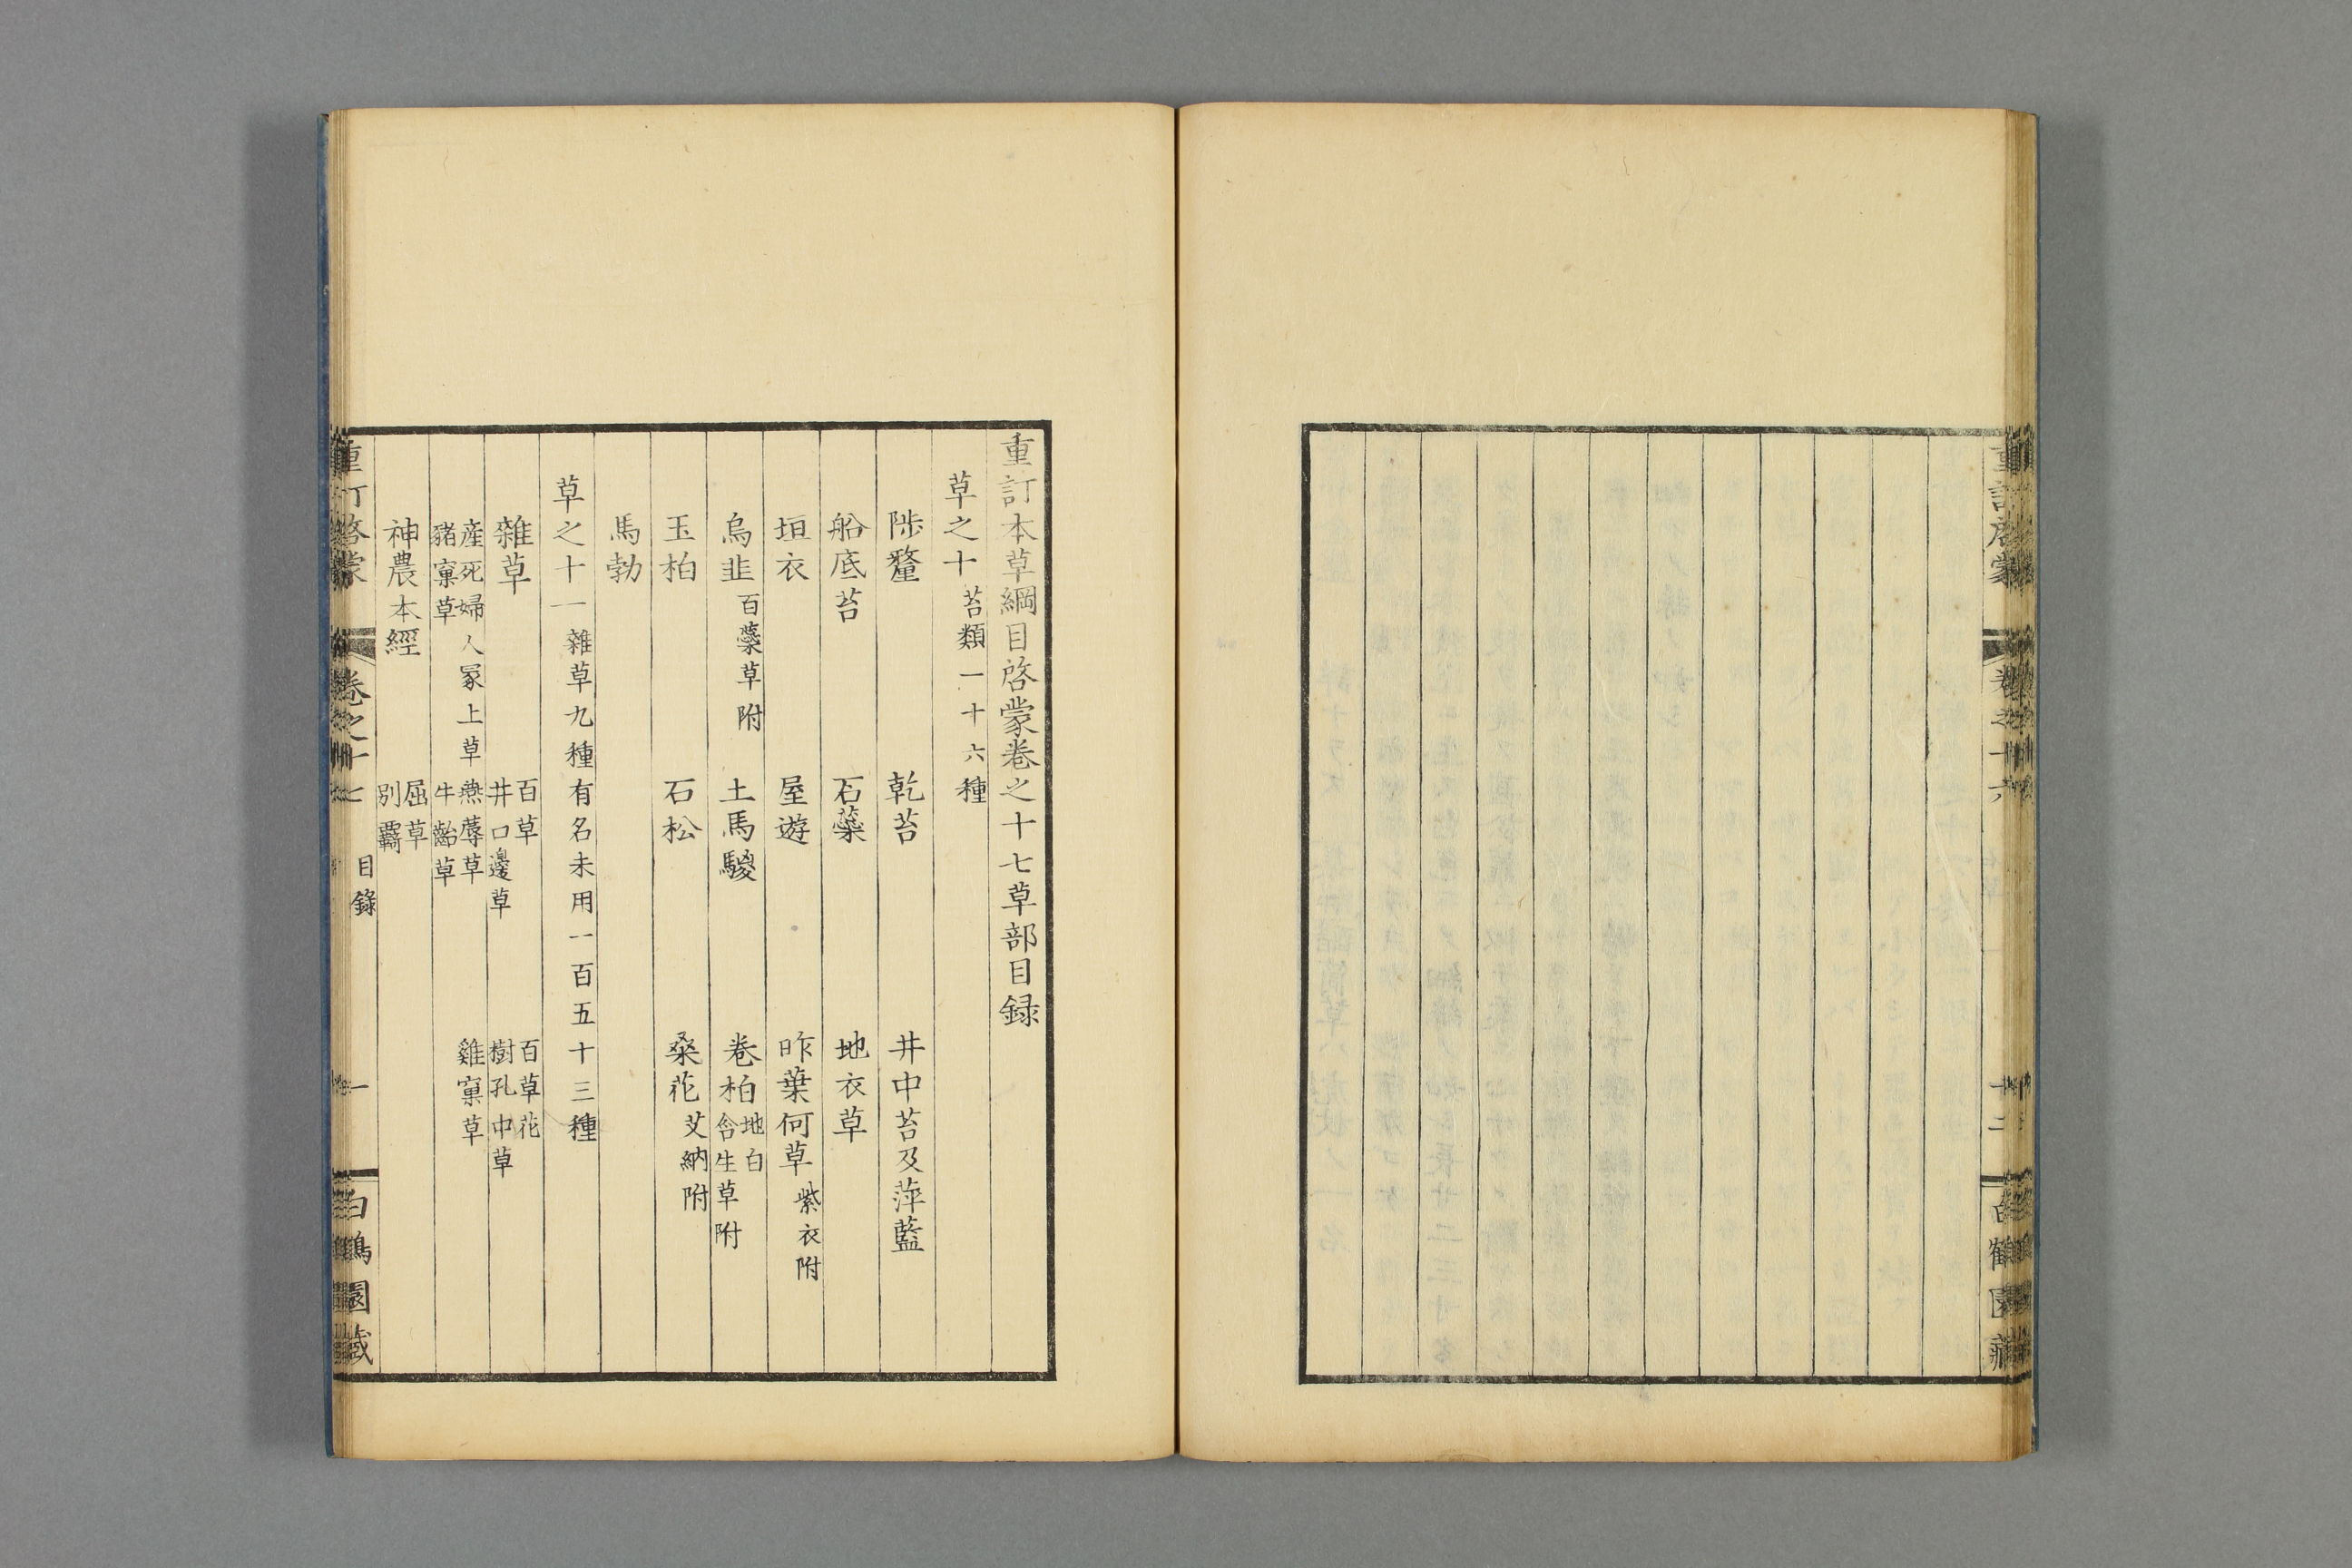 重訂啓蒙 卷之十六 十二 白鶴園藏
重訂本草綱目啓蒙卷之十七草部目録
草之十 苔類一十六種
陟釐 乾苔 井中苔及萍藍
船底苔 石蘂 地衣草
垣衣 屋遊 昨葉何草 紫衣附
烏韭 百蘂草附 土馬騣 卷柏 地白含生草附
玉柏 石松 桑花 艾納附
馬勃
草之十一 雜草九種有名未用一百五十三種
雜草 百草 百草花
井口邊草 樹孔中草
産死婦人冢上草 燕蓐草 雞窠草
豬窠草 牛齝草
神農本經 屈草
別羇
重訂啓蒙 卷之十七 目錄 一 白鶴園藏